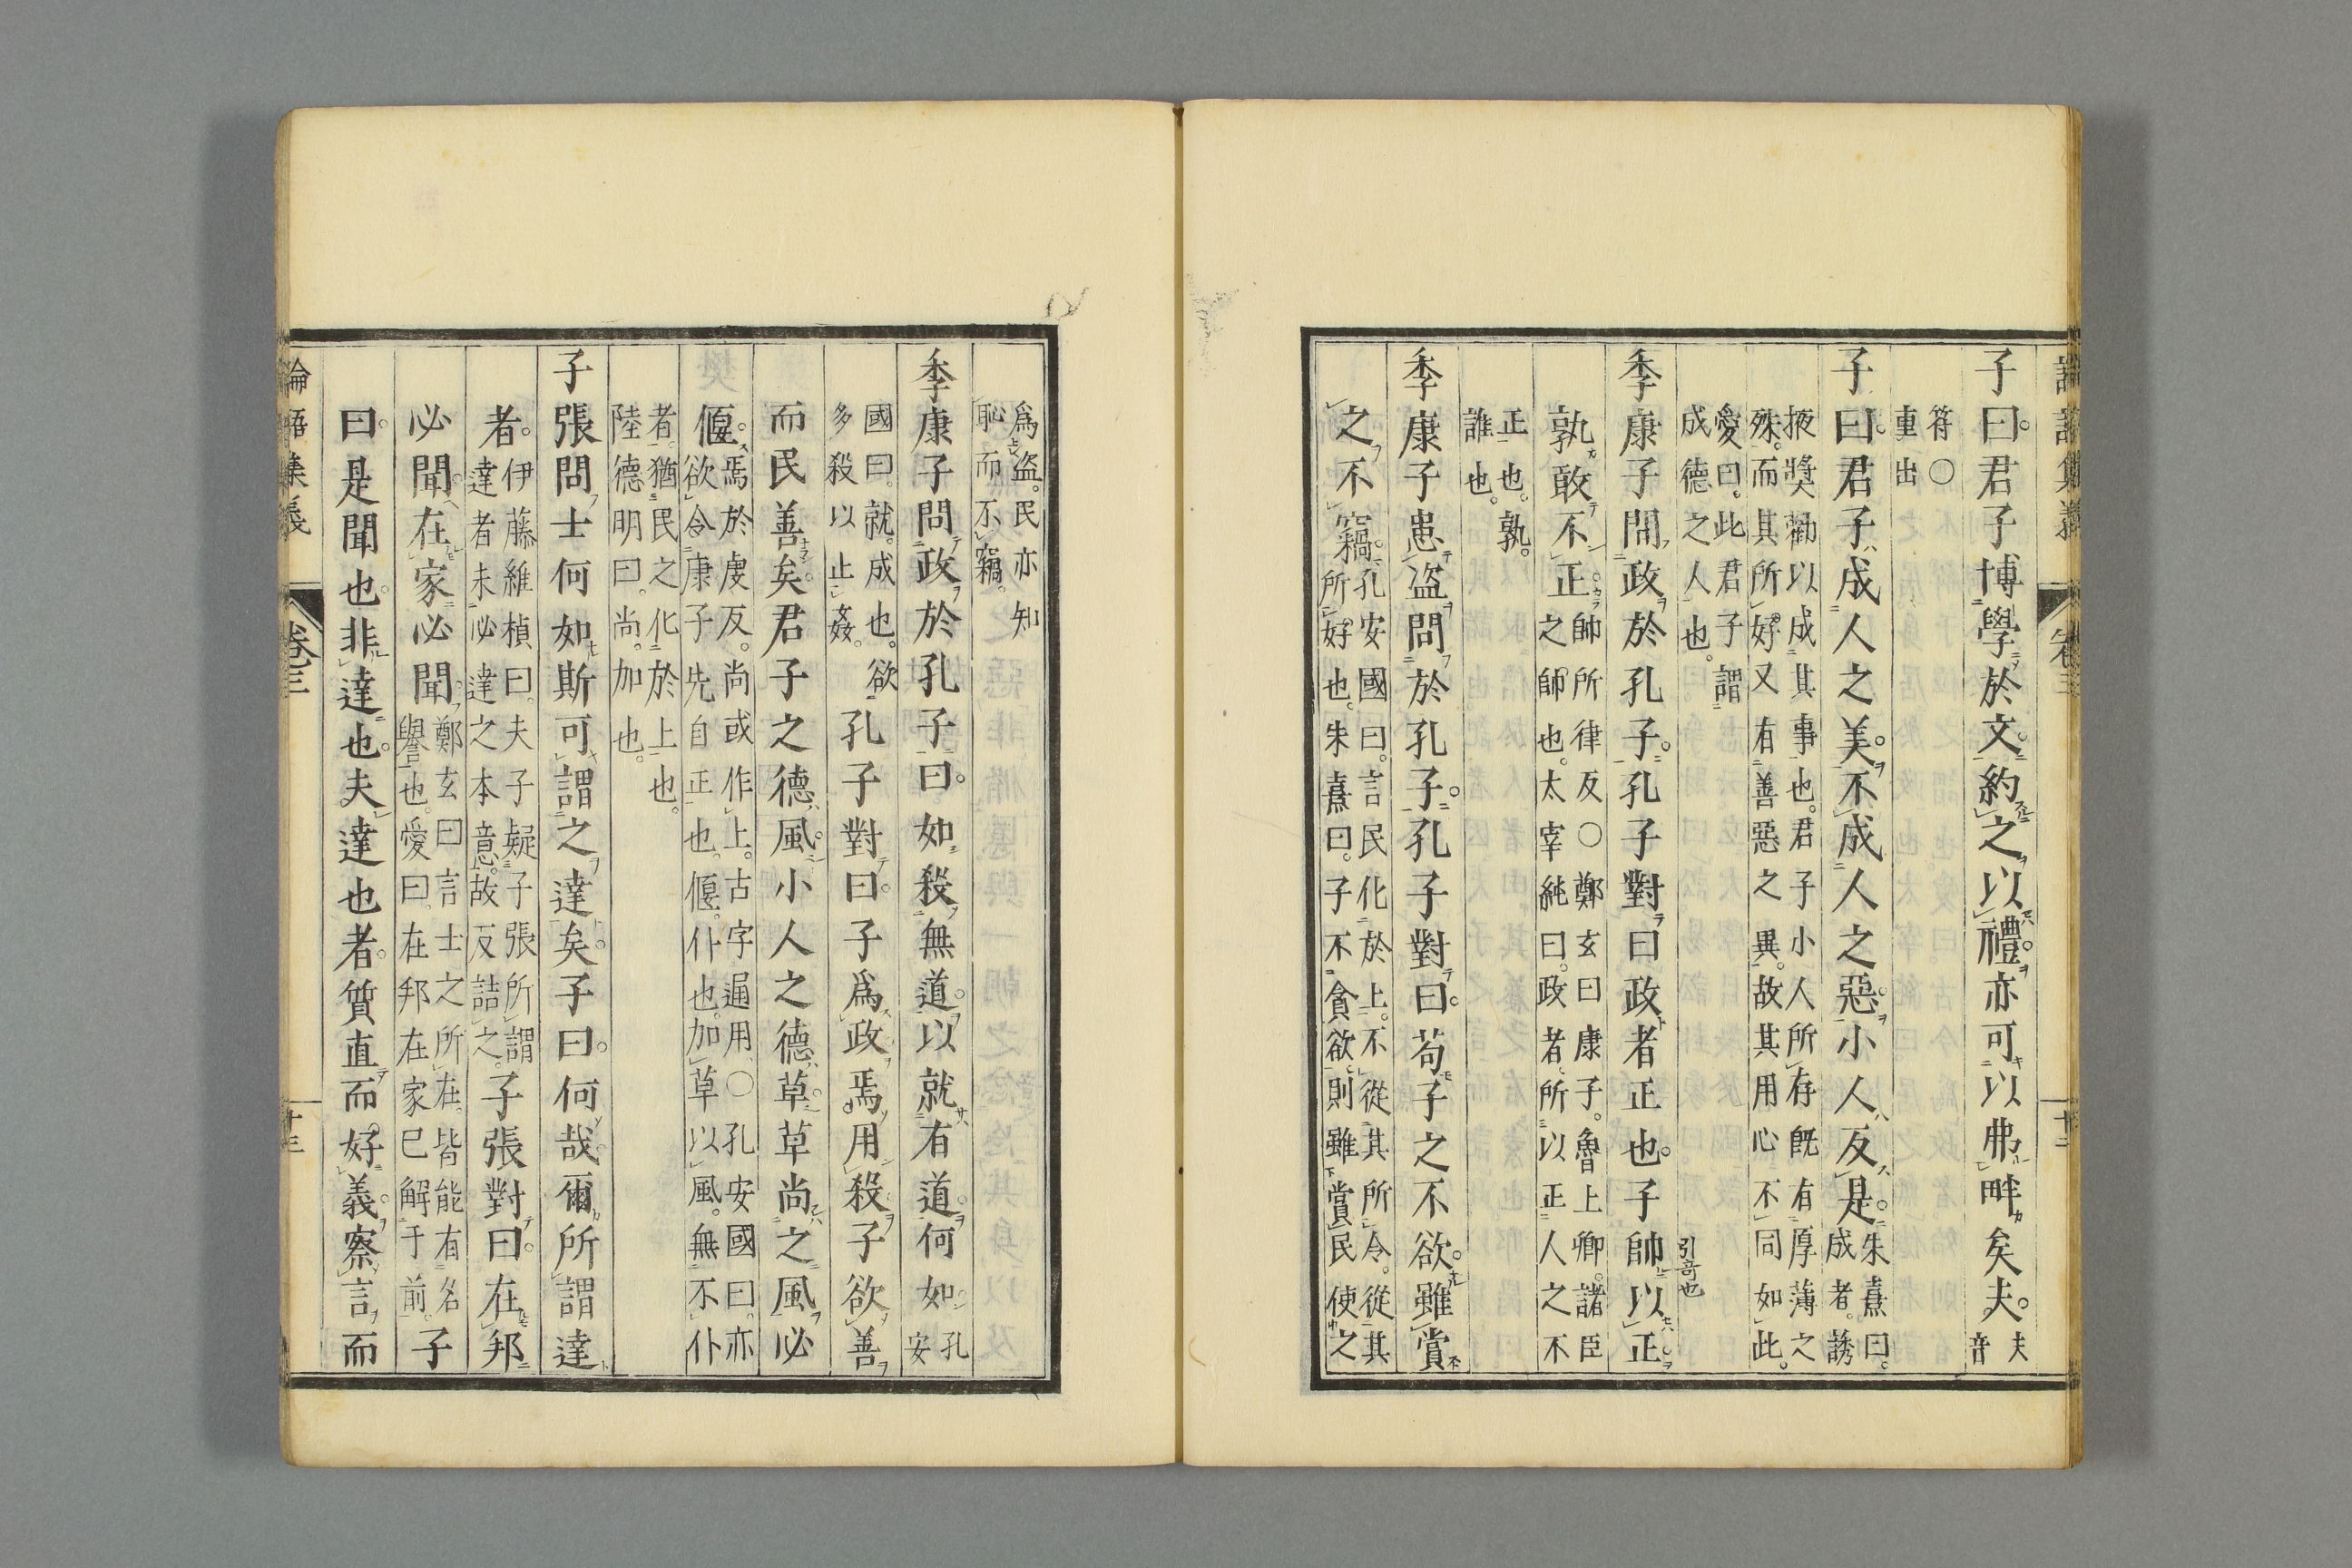 論語集義 卷三 十二
子曰。君子博學於文。約之以禮。亦可以弗畔矣夫。
夫
音
符○
重出
子曰。君子成人之美。不成人之惡。小人反是。
朱熹曰。
成者。誘
掖奬勸以成其事也。君子小人所存既有厚薄之
殊。而其所好又有善惡之異。故其用心不同如此。
愛曰。此君子謂
成德之人也。
季康子問政於孔子。孔子對曰政者正也。子帥以正。
孰敢不正。
帥所律反○鄭玄曰康子。魯上卿。諸臣
之師也。太宰純曰。政者。所以正人之不
正也。孰。
誰也。
季康子患盗問於孔子。孔子對曰。苟子之不欲。雖賞
之不竊。
孔安國曰。言民化於上。不從其所令。從其
所好也。朱熹曰。子不貪欲。則雖賞民使之
爲盗。民亦知
恥而不竊。
季康子問政於孔子曰。如殺無道。以就有道。何如
孔
安
國曰。就。成也。欲
多殺以止姦。
孔子對曰。子爲政。焉用殺子欲善
而民善矣。君子之德風。小人之德草。草尚之風必
偃。
焉於虔反。尚或作上。古字通用○孔安國曰。亦
欲令康子先自正也。偃。仆也。加草以風。無不仆
者。猶民之化於上也。
陸德明曰。尚。加也。
子張問士何如斯可謂之達矣。子曰。何哉爾所謂達
者。
伊藤維楨曰。夫子疑子張所謂
達者未必達之本意。故反詰之。
子張對曰。在邦
必聞。在家必聞。
鄭玄曰言士之所在。皆能有名
譽也。愛曰在邦在家已解于前。
子
曰。是聞也。非達也。夫達也者。質直而好義。察言而
論語集義 卷三 十三